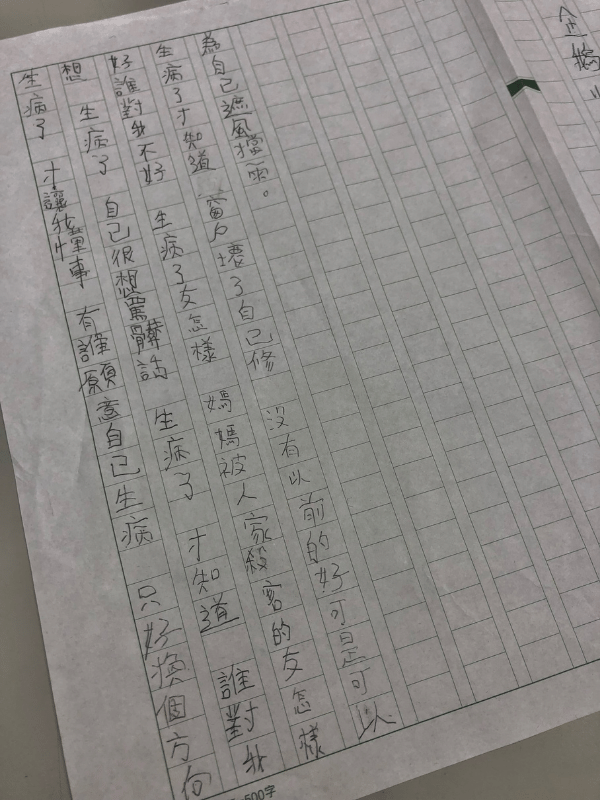 生病了 才讓我懂事 有誰願意自己生病 只好換個方向
想 生病了 自己很想罵髒話 生病了 才知道 誰對我
好誰對我不好 生病了友怎樣 媽媽被人家殺害的友怎樣
生病了才知道 窗戶壞了自己修 沒有以前的好可是可以
為自己遮風擋雨。
500字